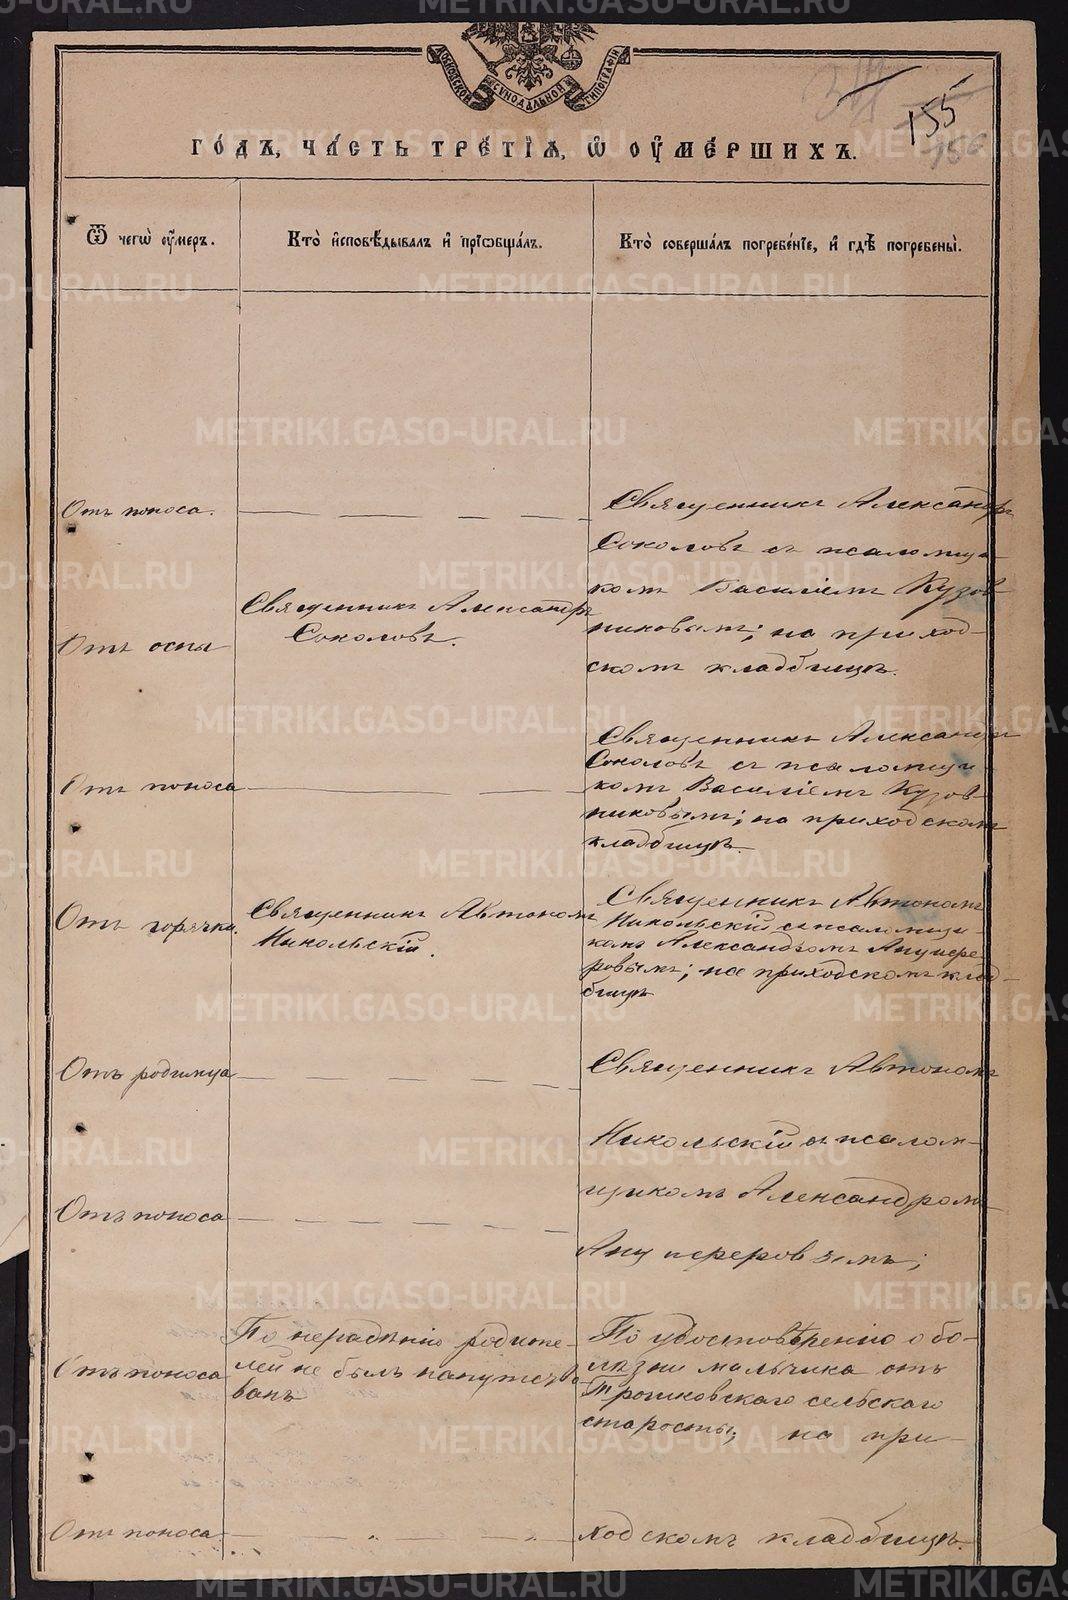 МОСКОВСКОЙ СѴНОДАЛЬНОЙ ТИПОГРАФІИ
155
ГО́ДЪ, ЧА́СТЬ ТРЕ́ТІѦ, Ѡ҆ ОУ҆МЕ́РШИХЪ.
Ѿ чегѡ̀ оу҆́меръ.
Кто̀ и҆сповѣ́дывалъ и҆ прїѡбща́лъ.
Кто̀ соверша́лъ погребе́нїе, и҆ гдѣ̀ погребены̀.
Отъ поноса.
Священникъ Александръ
Соколовъ съ псаломщи-
комъ Василіемъ Кузов-
никовымъ; на приход-
скомъ кладбищѣ.
Отъ оспы
Священникъ Александръ
Соколовъ.
Отъ поноса
Священникъ Александръ
Соколовъ съ псаломщи-
комъ Василіемъ Кузов-
никовымъ; на приходскомъ
кладбищѣ.
Отъ горячки.
Священникъ Автономъ
Никольскій.
Священникъ Автономъ
Никольскій съ псаломщи-
комъ Александромъ Анцифе-
ровымъ; на приходскомъ клад-
бищѣ
Отъ родимца
Священникъ Автономъ
Никольскій съ псалом-
щикомъ Александромъ
Анциферовымъ;
Отъ поноса
Отъ поноса
По нерадѣнію родите-
лей не былъ напутство-
ванъ
По удостовѣренію о бо-
лѣзни мальчика отъ
сельскаго
старосты; на при-
ходскомъ кладбищѣ.
Отъ поноса
METRIKI.GASO-URAL.RU